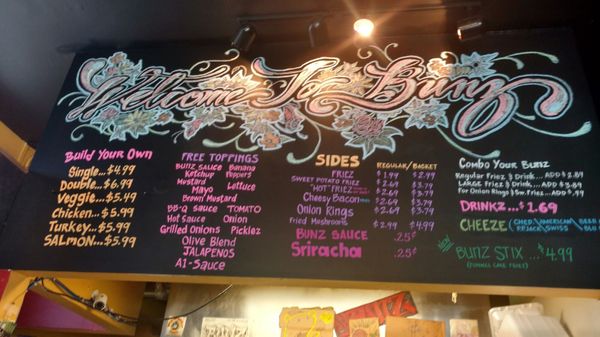 Welcome To Bunz
Build Your Own
Single...$4.99
Double...$6.99
Veggie...$5.49
Chicken...$5.99
Turkey...$5.99
SALMON...$5.99
FREE TOPPINGS
BUNZ SAUCE Banana
Ketchup Peppers
Mustard Lettuce
Mayo
Brown Mustard
BB-Q SAUCE TOMATO
Hot Sauce Onion
Grilled Onions Picklez
Olive Blend
JALAPENOS
A1-Sauce
SIDES REGULAR/BASKET
FRIEZ $1.99 $2.99
SWEET POTATO FRIEZ $2.69 $3.79
"HOT" FRIEZ $2.69 $3.79
Cheesy Bacon $2.69 $3.79
Onion Rings $2.69 $3.79
Fried Mushrooms $2.99 $4.99
BUNZ SAUCE .25¢
Sriracha .25¢
Combo Your Bunz
Regular Friez & Drink... ADD $2.89
LARGE Friez & Drink... ADD $3.89
For Onion Rings & Sm. Friez ... ADD $.99
DRINKZ...$1.69
CHEEZE
BUNZ STIX...$4.99
(FUNNEL CAKE FRIEZ)
BUNZ